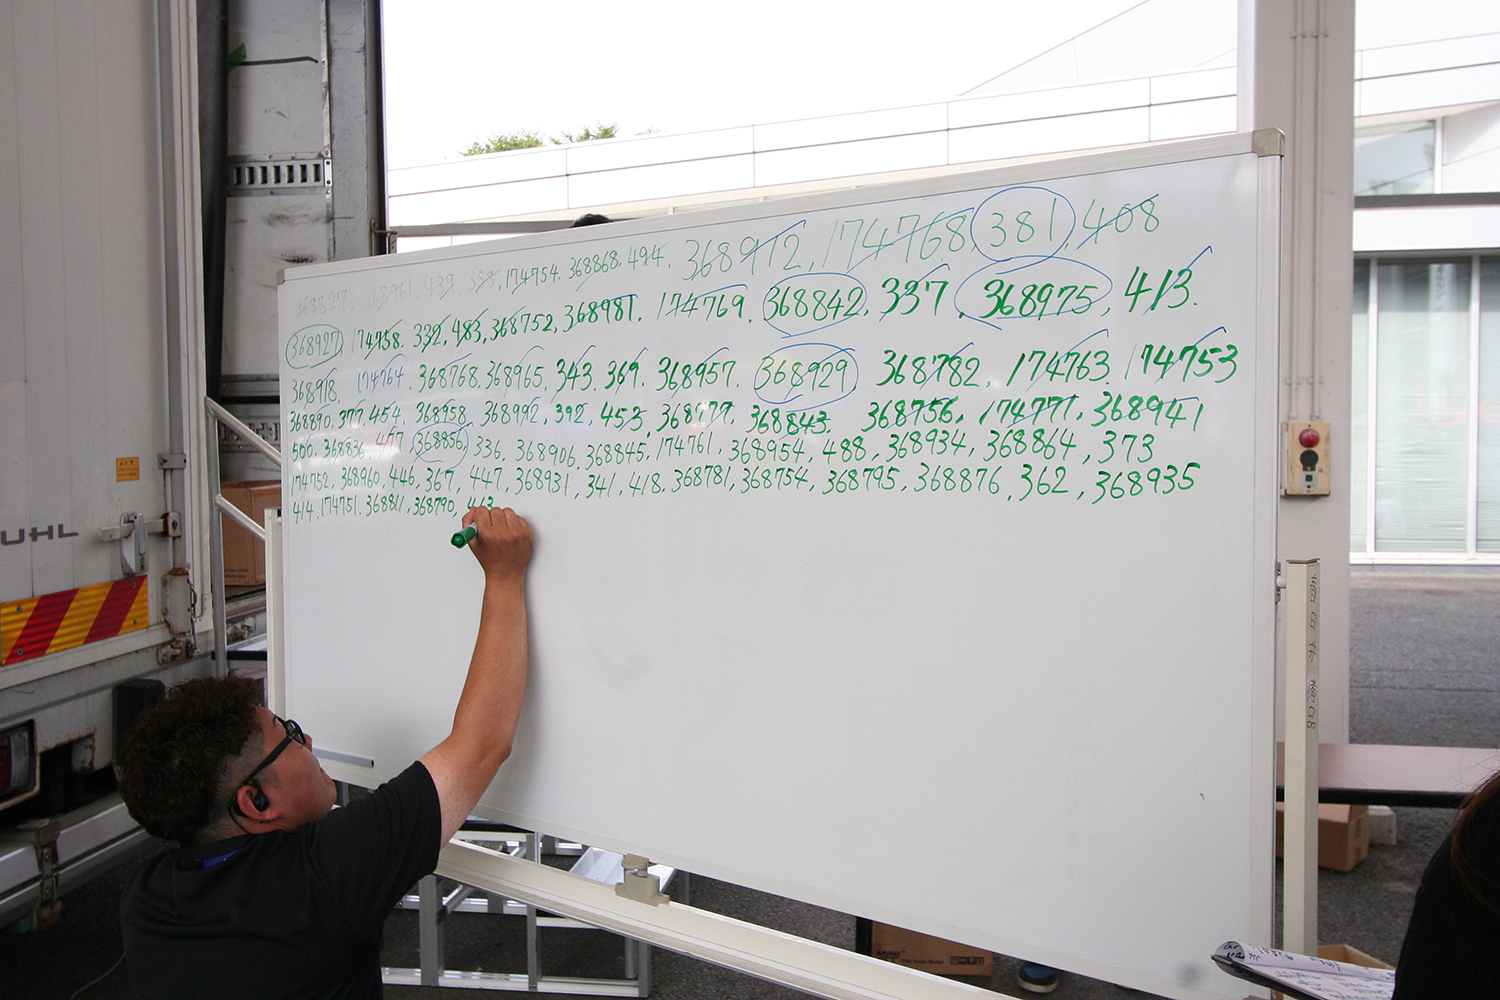 368827, 165961, 439, 358, 174754, 368868, 494, 368912, 174768, 381, 408
368927, 174758, 332, 483, 368752, 368981, 174769, 368842, 337, 368975, 413.
368918, 174764, 368768, 368965, 343, 369, 368957, 368929, 368782, 174763, 174753
368890, 377, 454, 368958, 368992, 392, 453, 368777, 368843, 368756, 174771, 368941
500, 368836, 477, 368856, 336, 368906, 368845, 174761, 368954, 488, 368934, 368864, 373
174752, 368960, 446, 367, 447, 368931, 341, 418, 368781, 368754, 368795, 368876, 362, 368935
414, 174751, 368811, 368790, 443
UHL